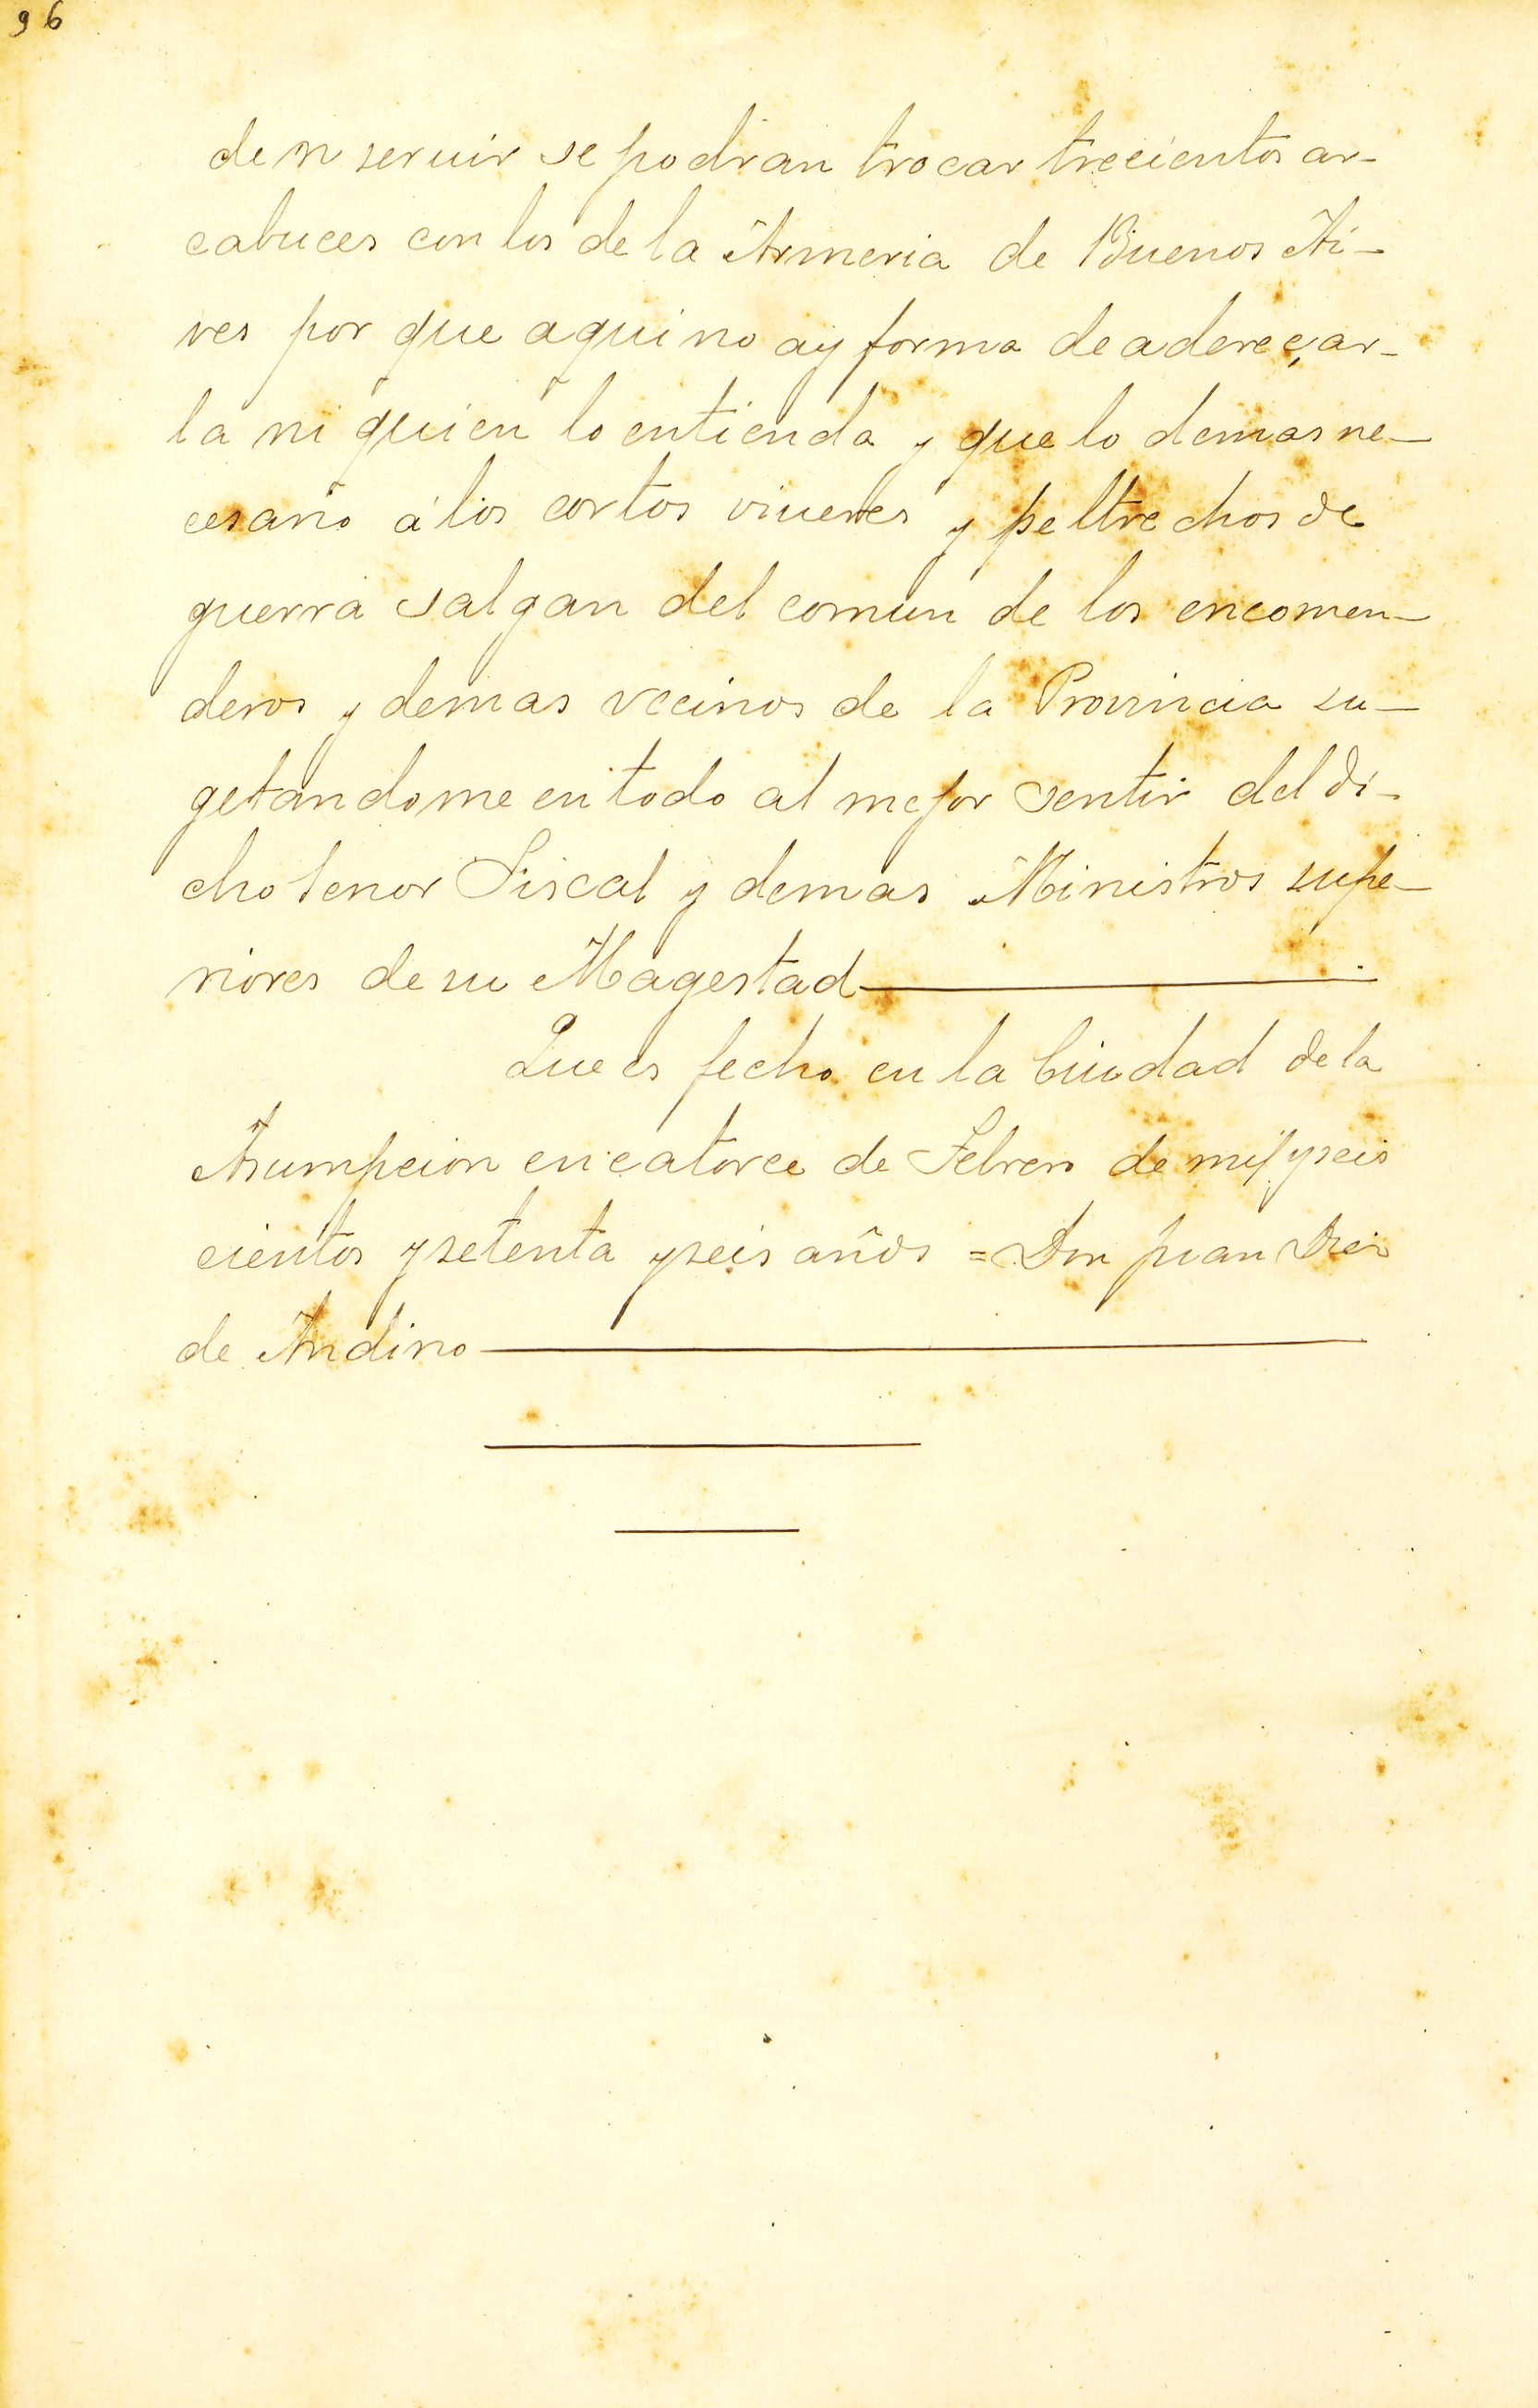 96
den seruir se podran trocar trecientos ar-
cabuces con los de la Armeria de Buenos Ai-
res por que aqui no ay forma de adereçar-
la ni quien lo entienda y que lo demas ne-
cesario á los cortos viueres y peltrechos de
guerra salgan del comun de los encomen-
deros y demas vecinos de la Provincia su-
getandome en todo al mejor sentir del di-
cho Senor Fiscal y demas Ministros supe-
riores de su Magestad
Que es fecho en la Ciudad de la
Asumpcion en catorce de Febrero de mil y seis
cientos y setenta y seis años = Don juan Diez
de Andino